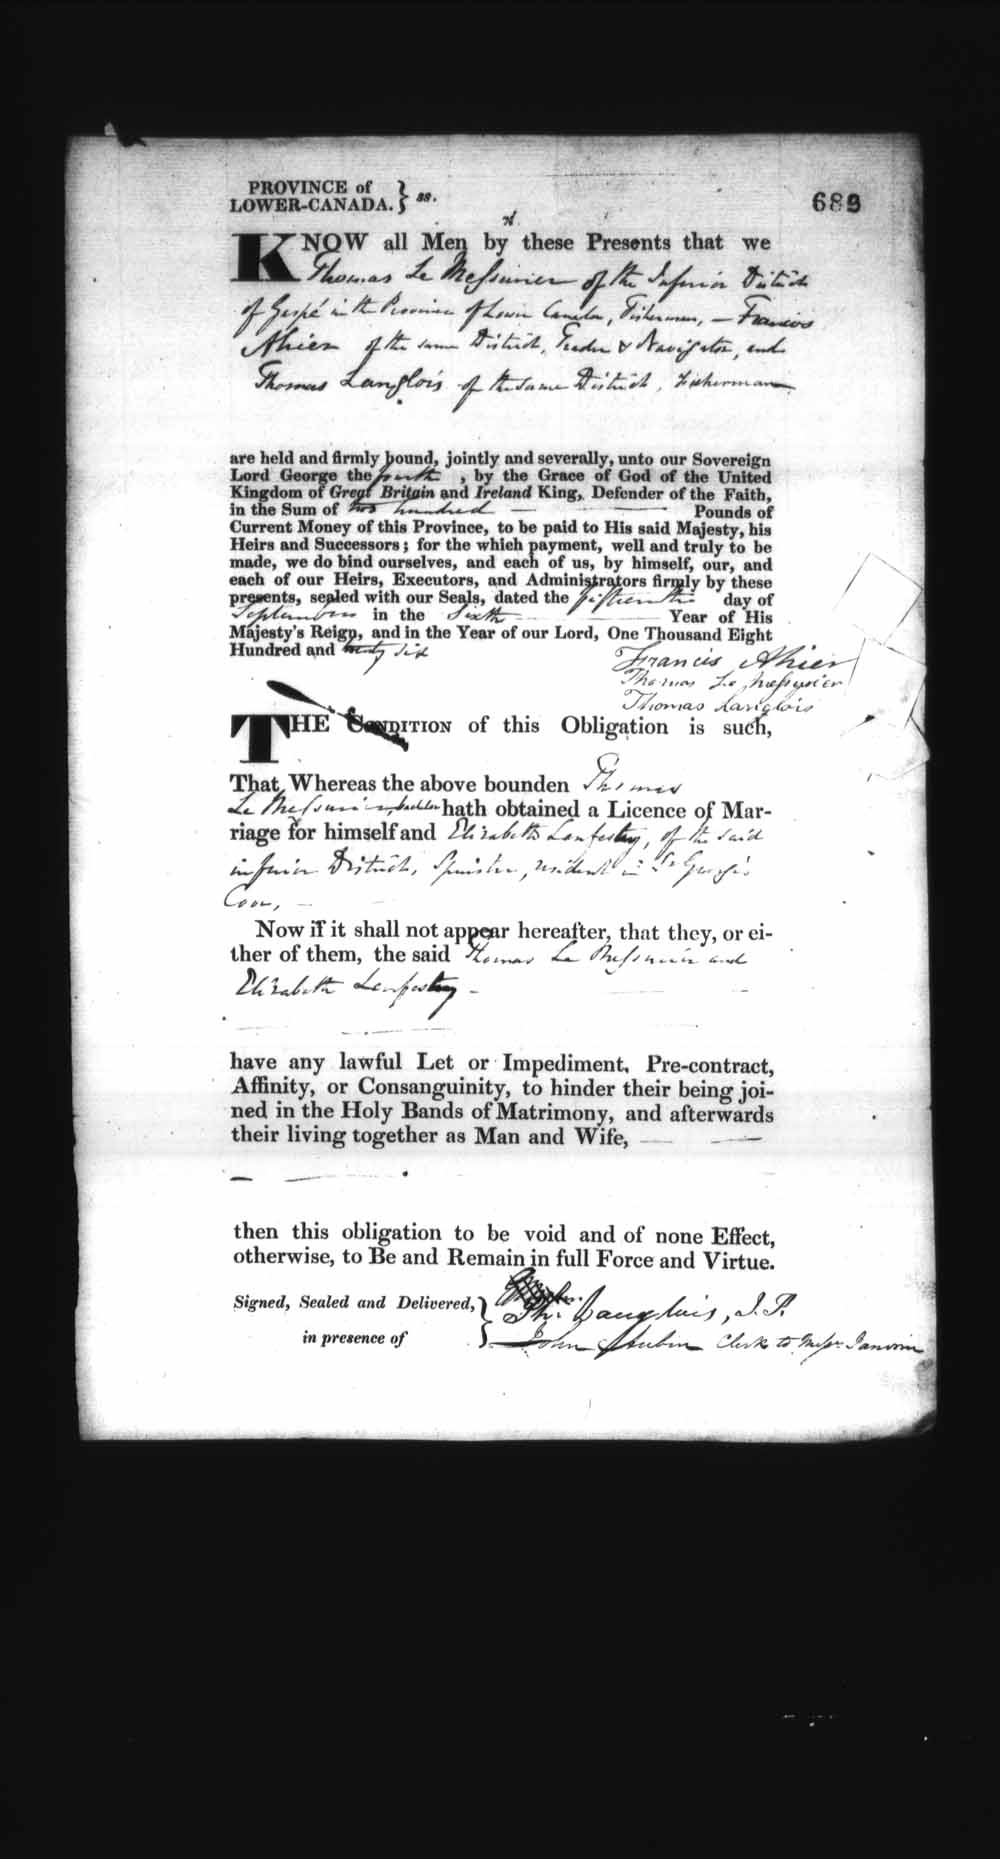 PROVINCE of
LOWER-CANADA. } ss.
683
KNOW all Men by these Presents that we
Thomas Le Messurier of the Inferior District
of Gaspé in the Province of Lower Canada, Fisherman, — Francis
Ahier of the same District, Trader & Navigator, and
Thomas Langlois of the same District, Fisherman
are held and firmly bound, jointly and severally, unto our Sovereign
Lord George the fourth , by the Grace of God of the United
Kingdom of Great Britain and Ireland King, Defender of the Faith,
in the Sum of two hundred — Pounds of
Current Money of this Province, to be paid to His said Majesty, his
Heirs and Successors; for the which payment, well and truly to be
made, we do bind ourselves, and each of us, by himself, our, and
each of our Heirs, Executors, and Administrators firmly by these
presents, sealed with our Seals, dated the fifteenth day of
September in the Sixth — Year of His
Majesty's Reign, and in the Year of our Lord, One Thousand Eight
Hundred and twenty six
Francis Ahier
Thomas Le Messurier
Thomas Langlois
THE CONDITION of this Obligation is such,
That Whereas the above bounden Thomas
Le Messurier, bachelor hath obtained a Licence of Mar-
riage for himself and Elizabeth Lenfestey, of the said
inferior District, Spinster, resident in St George's
Cove, —
Now if it shall not appear hereafter, that they, or ei-
ther of them, the said Thomas Le Messurier and
Elizabeth Lenfestey —
have any lawful Let or Impediment, Pre-contract,
Affinity, or Consanguinity, to hinder their being joi-
ned in the Holy Bands of Matrimony, and afterwards
their living together as Man and Wife, — —
then this obligation to be void and of none Effect,
otherwise, to Be and Remain in full Force and Virtue.
Signed, Sealed and Delivered, }
in presence of
Th. Langlois, J.P.
John Clerk to Messrs Janvrin